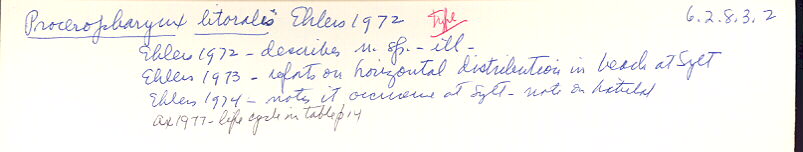 Proceropharynx litoralis Ehlers 1972 Type 6.2.8.3.2
Ehlers 1972 - describes n. sp. - ill -
Ehlers 1973 - reports on horizontal distribution in beach at Sylt
Ehlers 1974 - notes it occurrence at Sylt - note on habitat
Ax 1977 - life cycle in table p 14